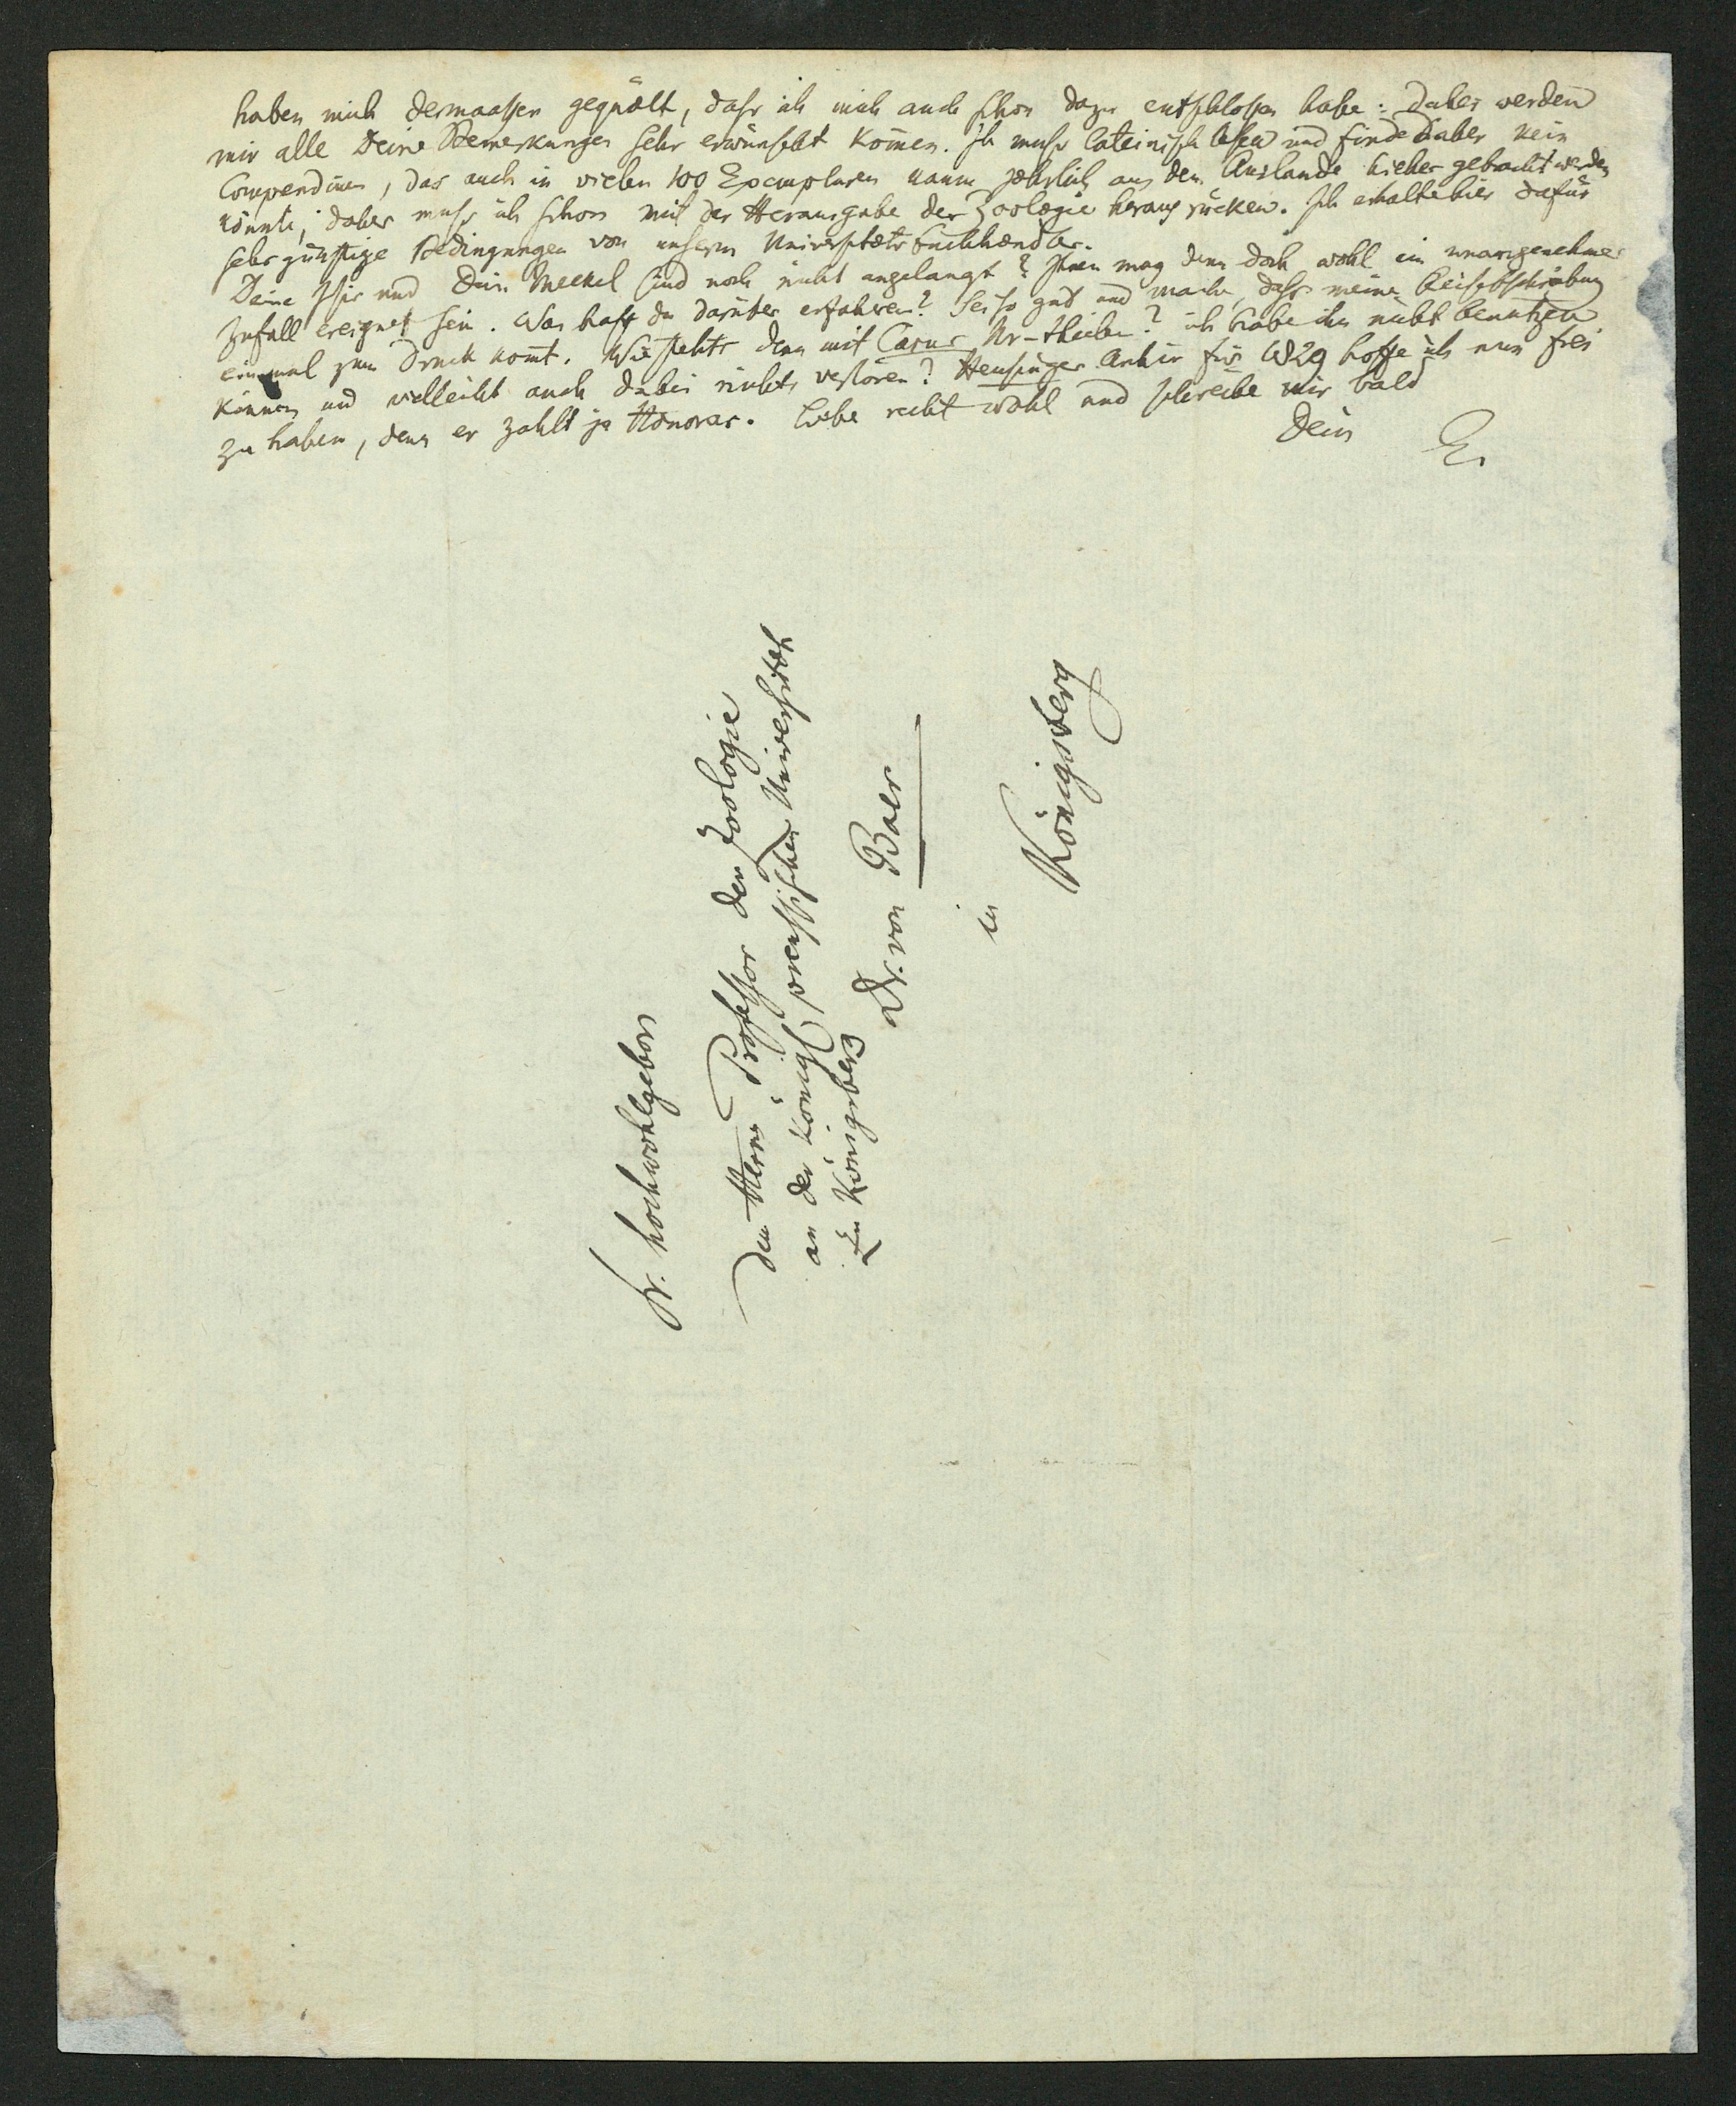 haben mich dermaassen gequält, dass ich mich auch schon dazu entschlossen habe: Daher werden
mir alle Deine Bemerkungen sehr erwünscht kom̄en. Ich muss lateinisch lesen und finde daher kein
Compendium, das auch in vielen 100 Exemplaren kaum jährlich aus dem Auslande hieher gebracht werden
könnte; daher muss ich schon mit der Herausgabe der Zoologie heraus rücken. Ich erhalte hier dafür
sehr günstige Bedingungen von unserm Universitätsbuchhändler.
Deine Isis und Dein Meckel sind noch nicht angelangt? Ihnen mag denn doch wohl ein unangenehmer
Zufall ereignet sein. Was hast du darüber erfahren? Sei so gut und mache, dass meine Reisebschreibung
einmal zum Druck kom̄t. Wie stehts denn mit Carus Ur-theilen? ich habe ihn nicht benutzen
können und vielleicht auch dabei nichts verloren? Heusinger Archiv für 1829 hoffe ich nun frei
zu haben, denn er zahlt ja Honorar. Lebe recht wohl und schreibe mir bald
Dein E.
Sr. hochwohlgeborn
dem Herrn Professor der Zoologie
an der königl preussischen Universität
zu Königsberg
Dr. von Baer
in
Königsberg